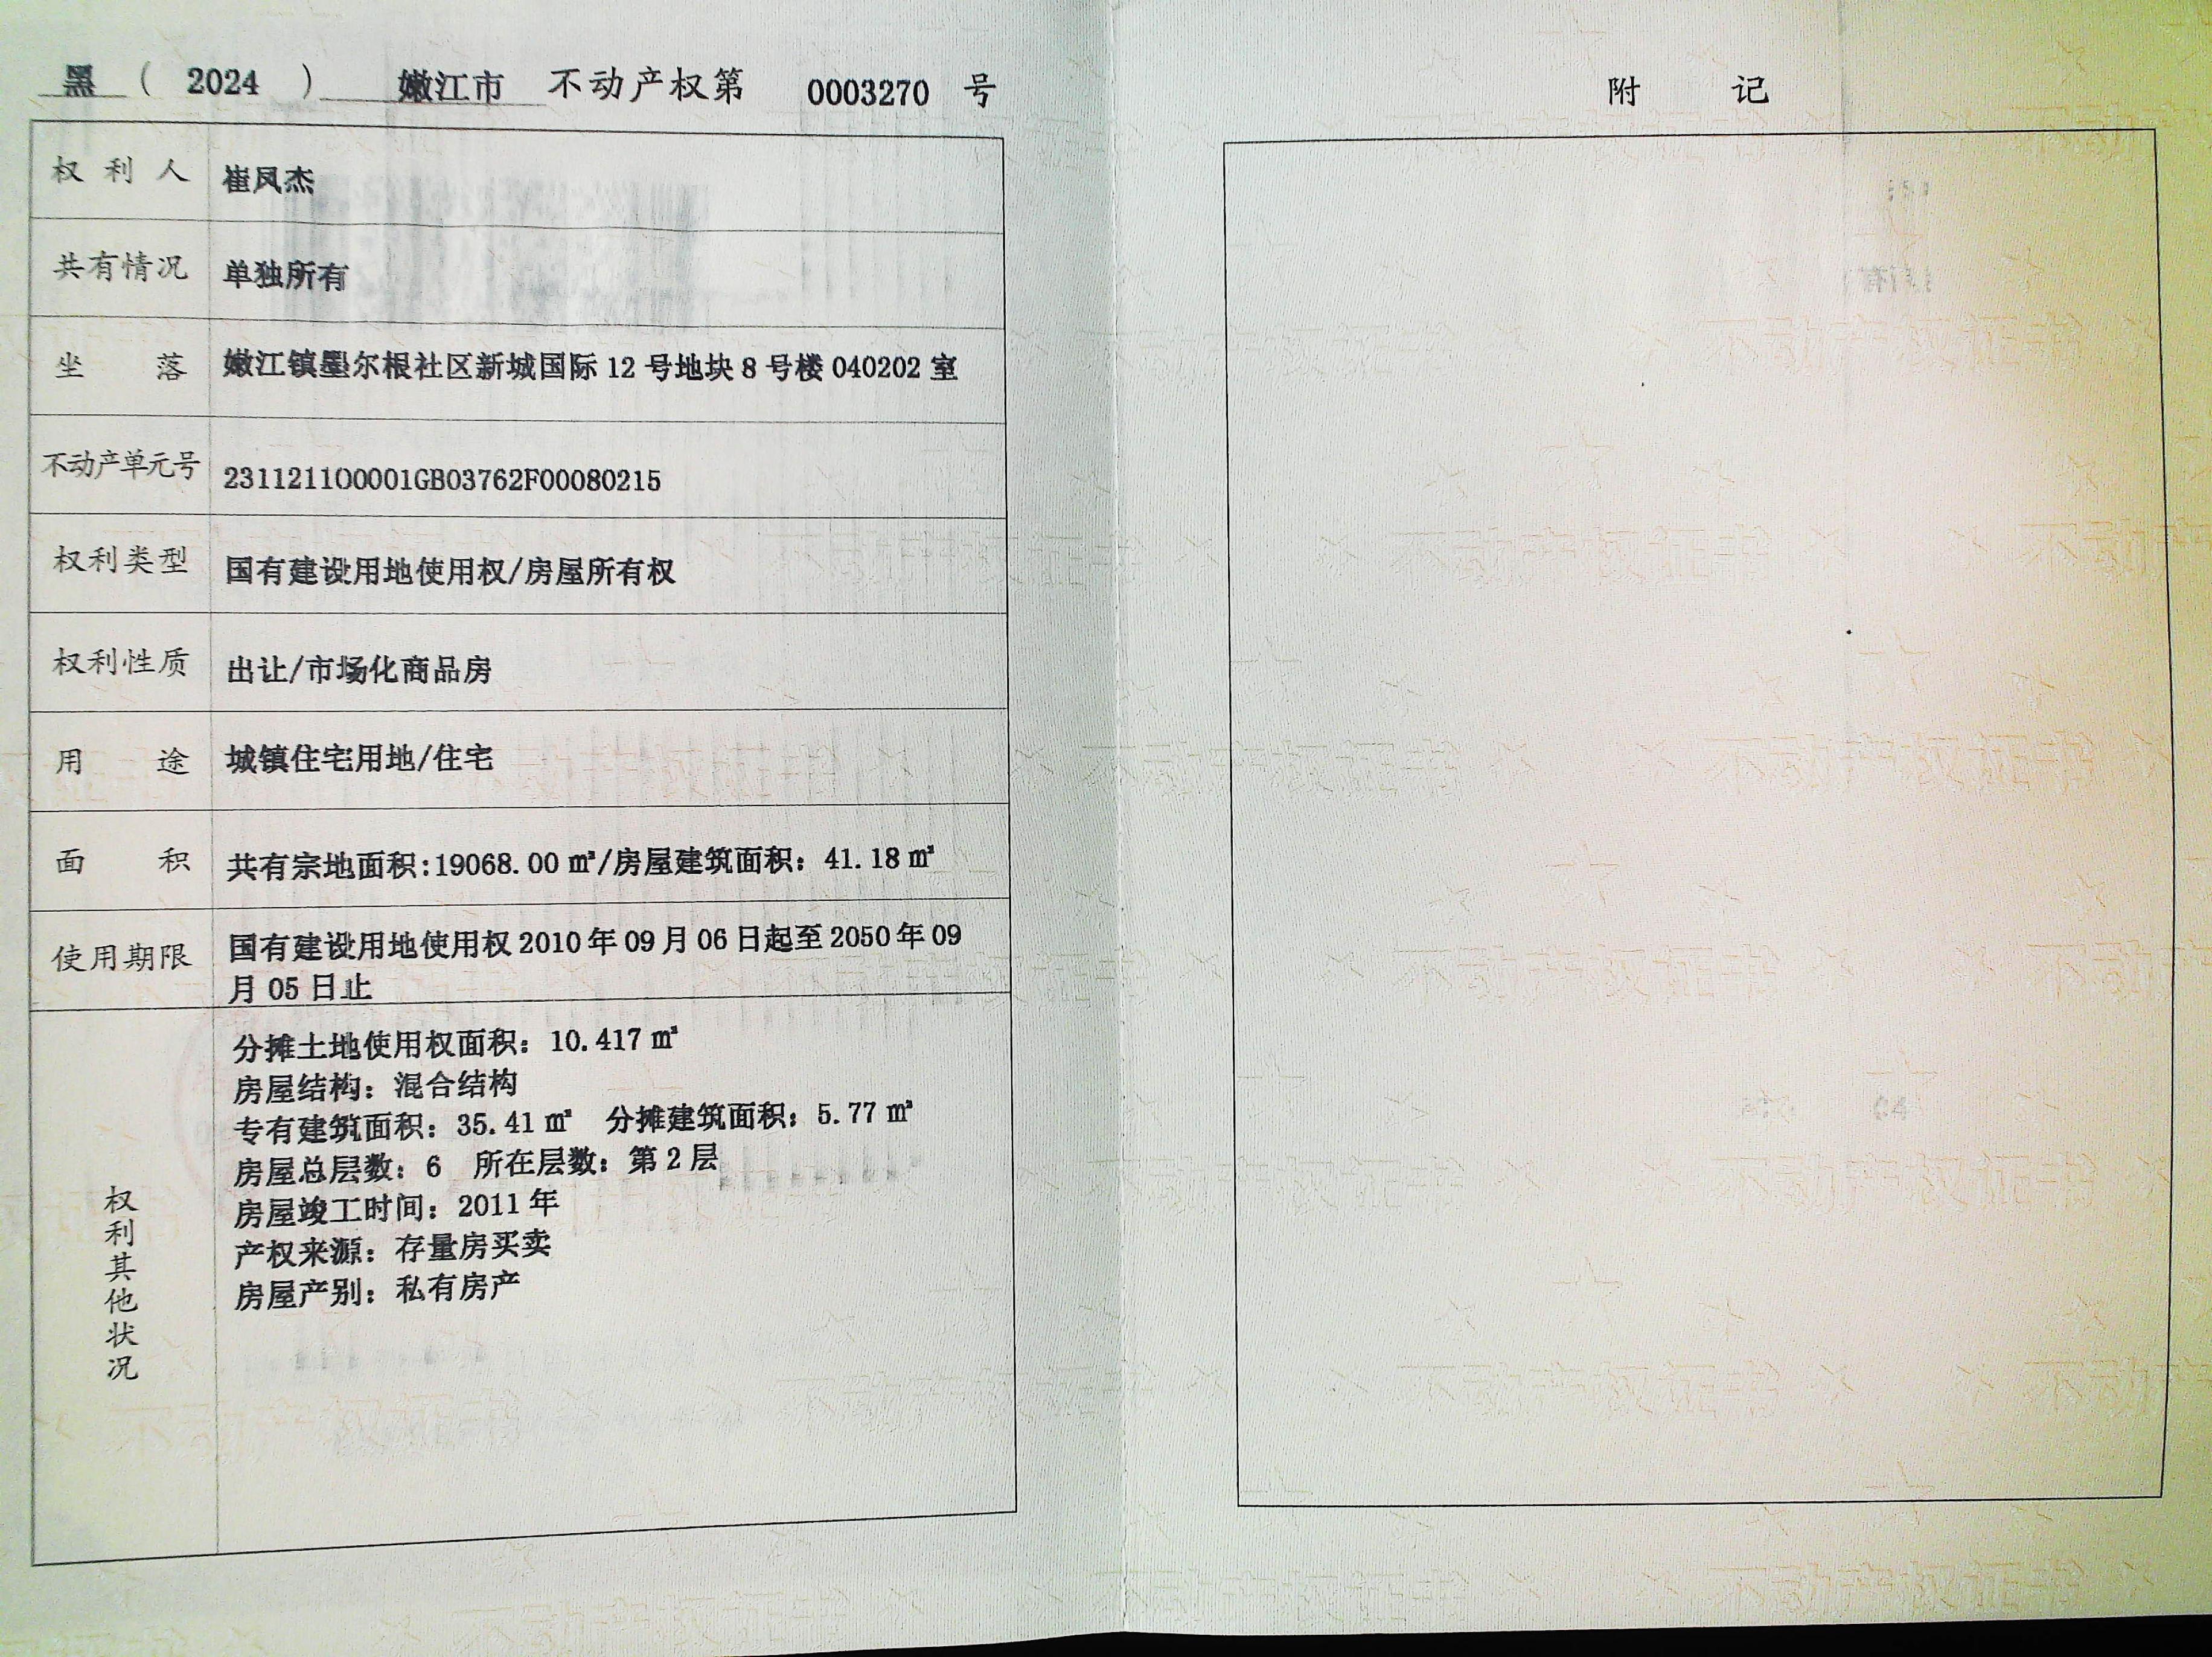 黑（2024）嫩江市 不动产权第 0003270 号
权利人 崔凤杰
共有情况 单独所有
坐落 嫩江镇墨尔根社区新城国际 12 号地块 8 号楼 040202 室
不动产单元号 231121100001GB03762F00080215
权利类型 国有建设用地使用权/房屋所有权
权利性质 出让/市场化商品房
用途 城镇住宅用地/住宅
面积 共有宗地面积:19068.00 ㎡/房屋建筑面积：41.18 ㎡
使用期限 国有建设用地使用权 2010 年 09 月 06 日起至 2050 年 09
月 05 日止
权利其他状况
分摊土地使用权面积：10.417 ㎡
房屋结构：混合结构
专有建筑面积：35.41 ㎡ 分摊建筑面积：5.77 ㎡
房屋总层数：6 所在层数：第 2 层
房屋竣工时间：2011 年
产权来源：存量房买卖
房屋产别：私有房产
附记